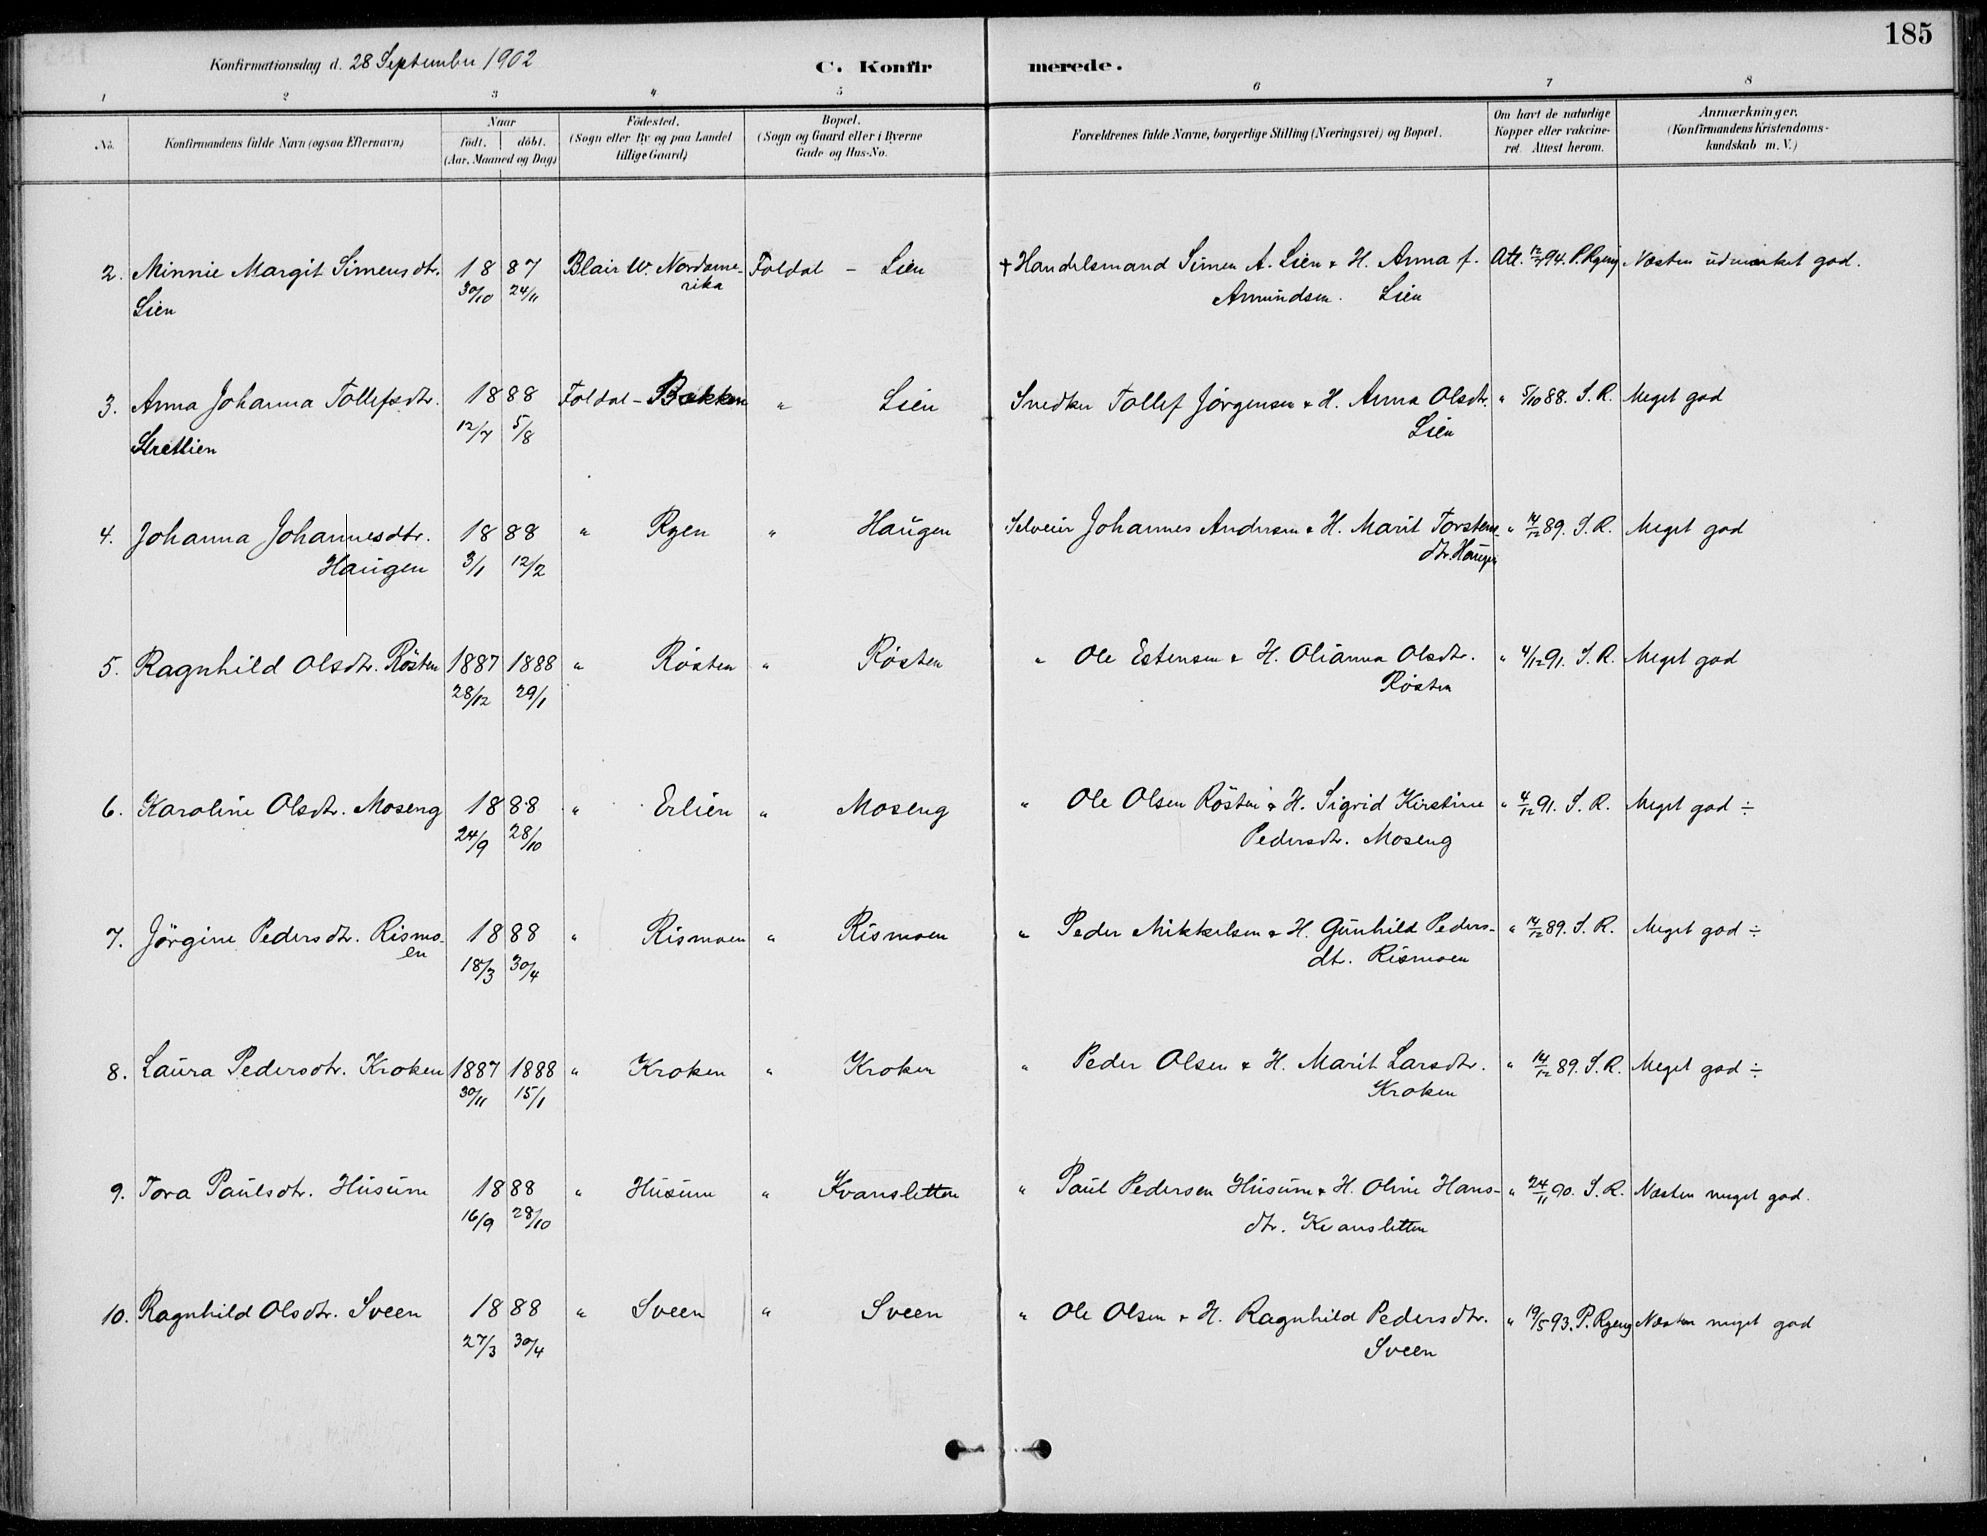 185
Konfirmationsdag d. 28 September 1902
C. Konfirmerede.
1 2 3 4 5 6 7 8
No. Konfirmandens fulde Navn (ogsaa Efternavn) Naar født. døbt. (Aar, Maaned og Dag) Fødested. (Sogn eller By og paa Landet tillige Gaard) Bopæl. (Sogn og Gaard eller i Byerne Gade og Hus-No. Forældrenes fulde Navne, borgerlige Stilling (Næringsvei) og Bopæl. Om havt de naturlige Kopper eller vakcineret. Attest herom. Anmærkninger. (Konfirmandens Kristendomskundskab m. V.)
2. Minnie Margit Simensdtr. 1887 Blair W. Nordame- Foldal - Lien † Handelsmand Simen A. Lien & H. Anna f. Att. 94. P. Ryeng Næsten udmærket god.
Lien 30/10 24/11 rika Amundsen. Lien
3. Anna Johanna Tollefsdtr. 1888 Foldal - Bakken " Lien Snedker Tollef Jörgensen & H. Anna Olsdtr. " 5/10 88. S. R. Meget god
Strætlien 12/7 5/8 Lien
4. Johanna Johannesdtr. 1888 " Ryen " Haugen Selveier Johannes Andersen & H. Marit Torstens- " 14/12 89. S. R. Meget god
Haugen 3/1 12/2 dtr. Haugen
5. Ragnhild Olsdtr. Rösten 1887 1888 " Rösten " Rösten " Ole Estensen & H. Olianna Olsdtr. " 4/12 91. S. R. Meget god
28/12 29/1 Rösten
6. Karoline Olsdtr. Moseng 1888 " Erlien " Moseng " Ole Olsen Rösten & H. Sigrid Kirstine " 4/12 91. S. R. Meget god ÷
24/9 28/10 Pedersdtr. Moseng
7. Jörgine Pedersdtr. Rismo- 1888 " Rismoen " Rismoen " Peder Mikkelsen & H. Gunhild Peders- " 14/12 89. S. R. Meget god ÷
en 18/3 30/4 dt. Rismoen
8. Laura Pedersdtr. Kroken 1887 1888 " Kroken " Kroken " Peder Olsen & H. Marit Larsdtr. " 14/12 89. S. R. Meget god ÷
30/11 15/1 Kroken
9. Tora Paulsdtr. Husum 1888 " Husum " Kvansletten " Paul Pedersen Husum & H. Oline Hans- " 24/11 90. S. R. Næsten meget god.
16/9 28/10 dtr. Kvansletten
10. Ragnhild Olsdtr. Sveen 1888 " Sveen " Sveen " Ole Olsen & H. Ragnhild Pedersdtr. " 19/5 93. P. Ryeng Næsten meget god
27/3 30/4 Sveen